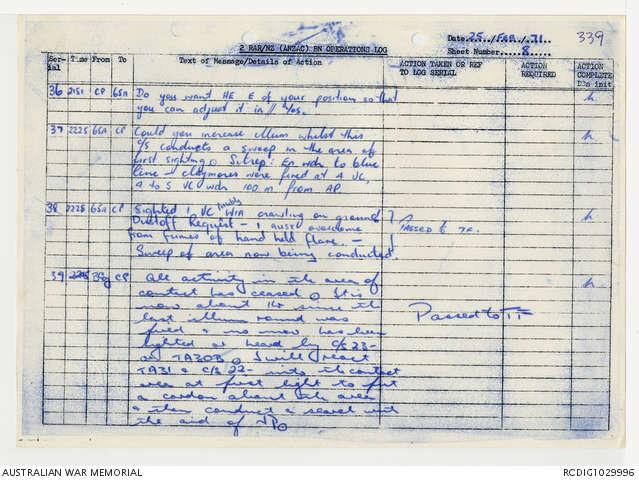 Date 25 / FEB / 71
339
2 RAR/NZ (ANZAC) BN OPERATIONS LOG
Sheet Number 8
Ser-ial Time From To Text of Message/Details of Action ACTION TAKEN OR REF TO LOG SERIAL ACTION REQUIRED ACTION COMPLETE
36 2151 CP 65A Do you want HE E of your position so that
you can adjust it in // Yes.
37 2225 65A CP Could you increase illum whilst this
c/s conducts a sweep in the area of
first sighting. Sitrep: En wdr to blue
line - claymores were fired at 4 VC,
4 to 5 VC wdr 100 m from AP.
38 2225 65A CP Sighted 1 VC WIA crawling on ground
Dustoff Request - 1 aust overcome Passed to TF.
from fumes of hand held flare. -
Sweep of area now being conducted.
39 CP All activity in the area of
contact has ceased. It is
now about 1 hr since the
last illum round was
fired & no mov has been
sighted or heard by C/S 23- Passed to TF
or TA30B. I will react
TA31 & C/S 22- into the contact
area at first light to put
a cordon about the area
& then conduct a search with
the aid of
AUSTRALIAN WAR MEMORIAL
RCDIG1029996